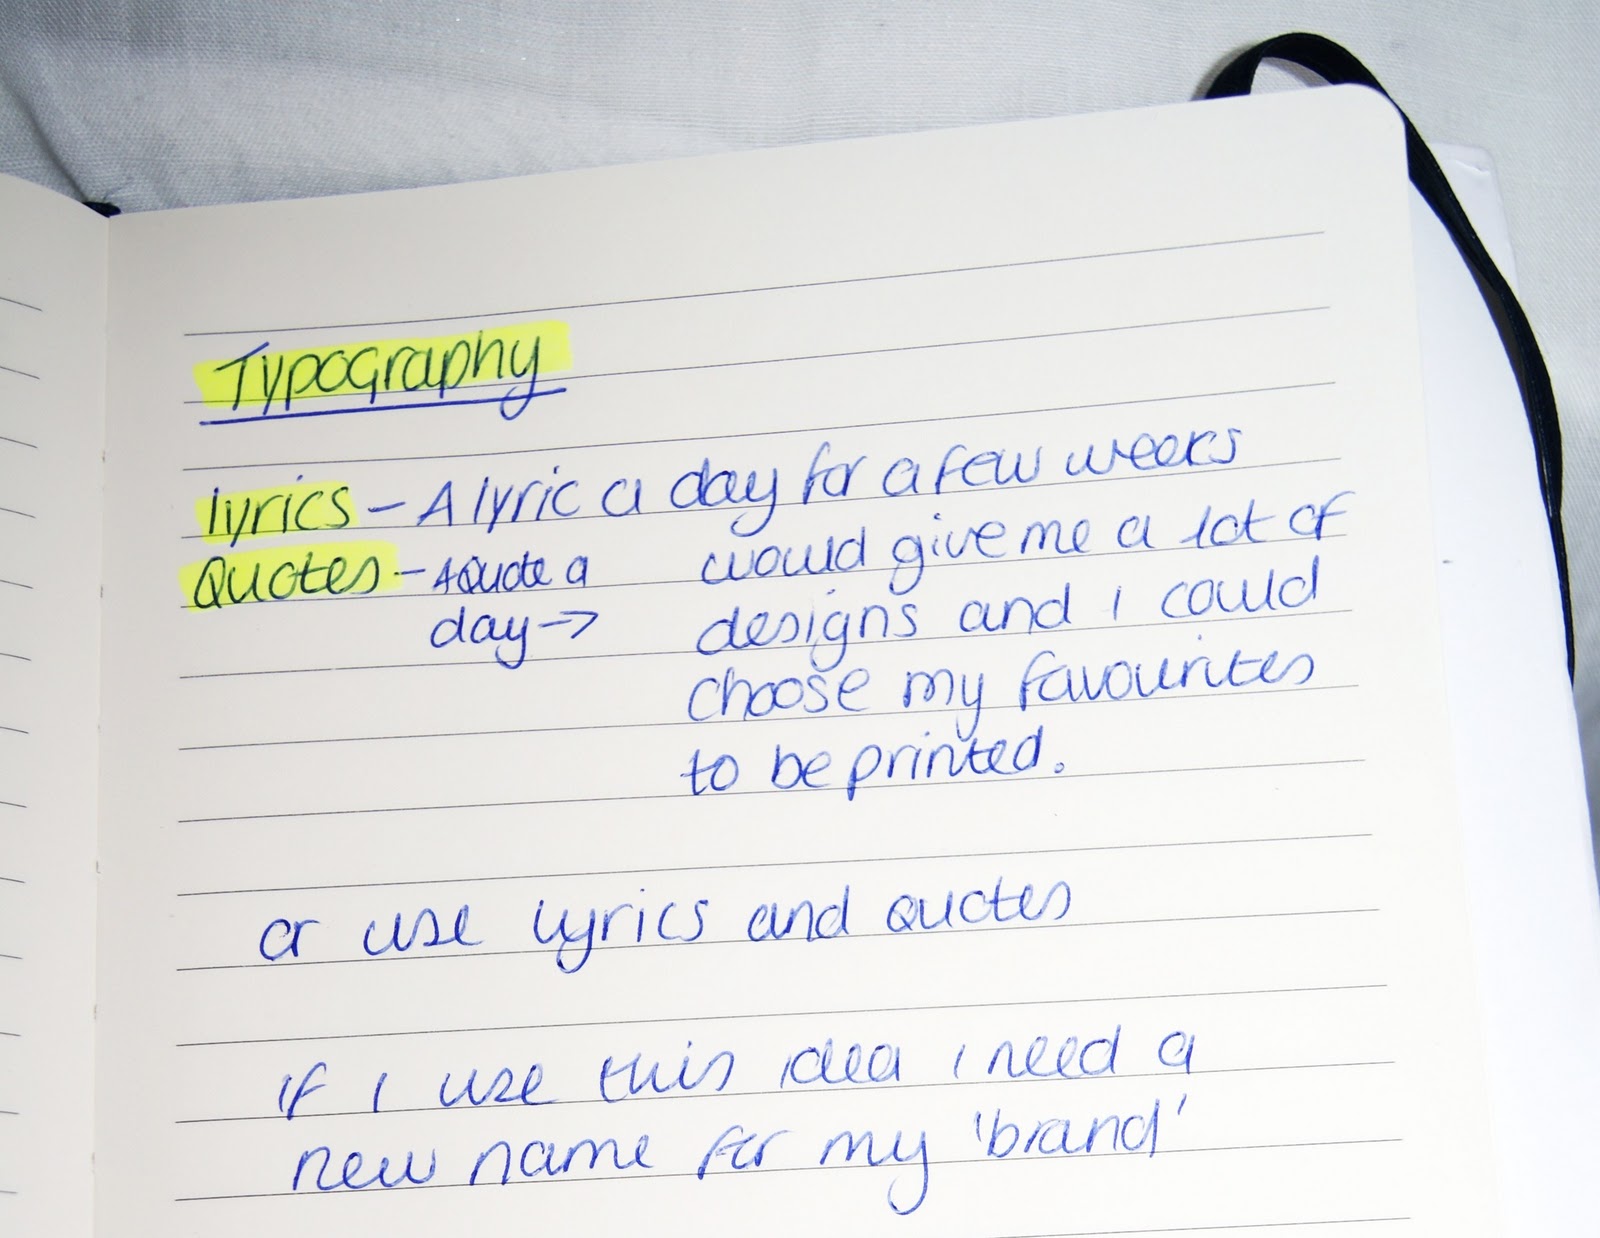 Typography
lyrics - A lyric a day for a few weeks
Quotes - A Quote a would give me a lot of
day → designs and i could
choose my favourites
to be printed.
or use lyrics and quotes
if I use this idea i need a
new name for my 'brand'